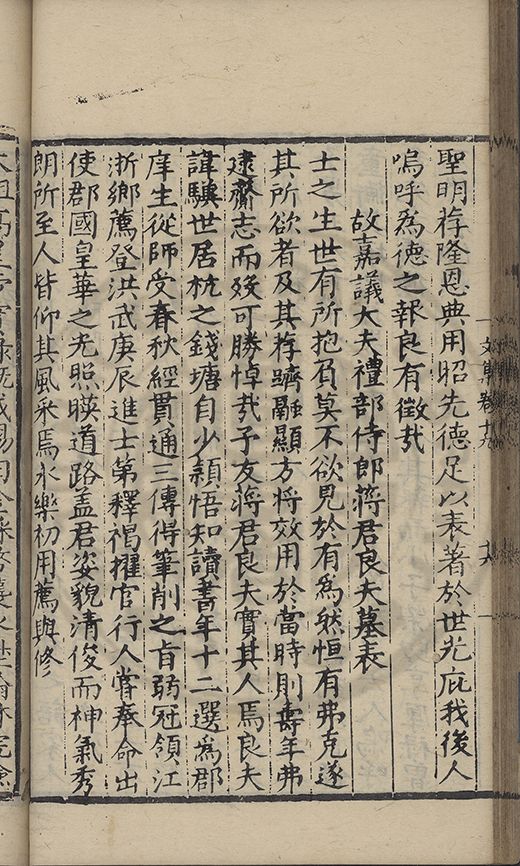 聖明荐隆恩典用昭先德足以表著於世光庇我後人
嗚呼為德之報良有徵㦲
故嘉議大夫禮部侍郎蔣君良夫墓表
士之生世有所抱負莫不欲見於有為然恒有弗克遂
其所欲者及其荐躋融顯方將效用於當時則壽年弗
逮齎志而歿可勝悼㦲予友蔣君良夫實其人焉良夫
諱驥世居杭之錢塘自少穎悟知讀書年十二選為郡
庠生從師受春秋經貫通三傳得筆削之旨弱冠領江
浙鄉薦登洪武庚辰進士第釋褐擢官行人嘗奉命出
使郡國皇華之光照暎道路盖君姿貌清俊而神氣秀
朗所至人皆仰其風采焉永樂初用薦與修
文集卷十九